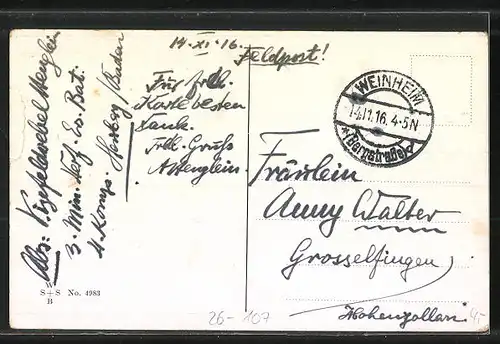 14. XI. 16.
Feldpost!
Für frdl.
Karte besten
Dank.
Frdl. Gruß
A. Wenglein.
Abs: Vizefeldwebel Wenglein
3. Min. Werf. Ers. Bat.
4. Komp. Baden
WEINHEIM
14.11.16. 4-5N
*(Bergstraße)
Fräulein
Anny Walter
Grosselfingen
Hohenzollern
S+S No. 4983
B
26-107
4,-